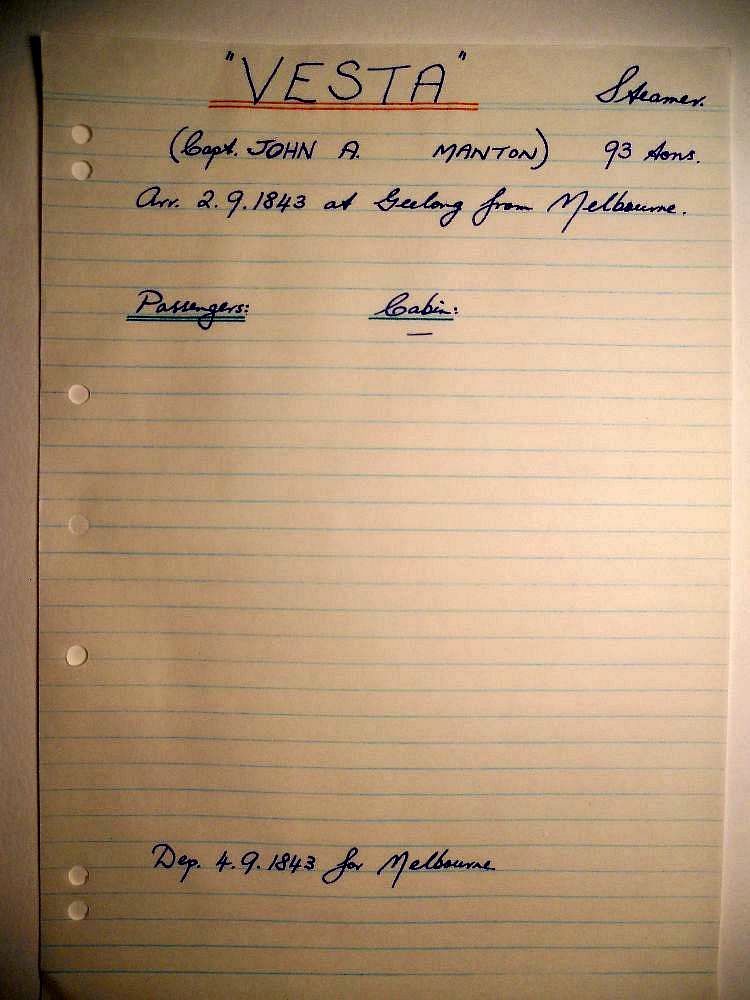 "VESTA" Steamer.
(Capt. JOHN A. MANTON) 93 tons.
Arr. 2.9.1843 at Geelong from Melbourne.
Passengers: Cabin:
—
Dep. 4.9.1843 for Melbourne